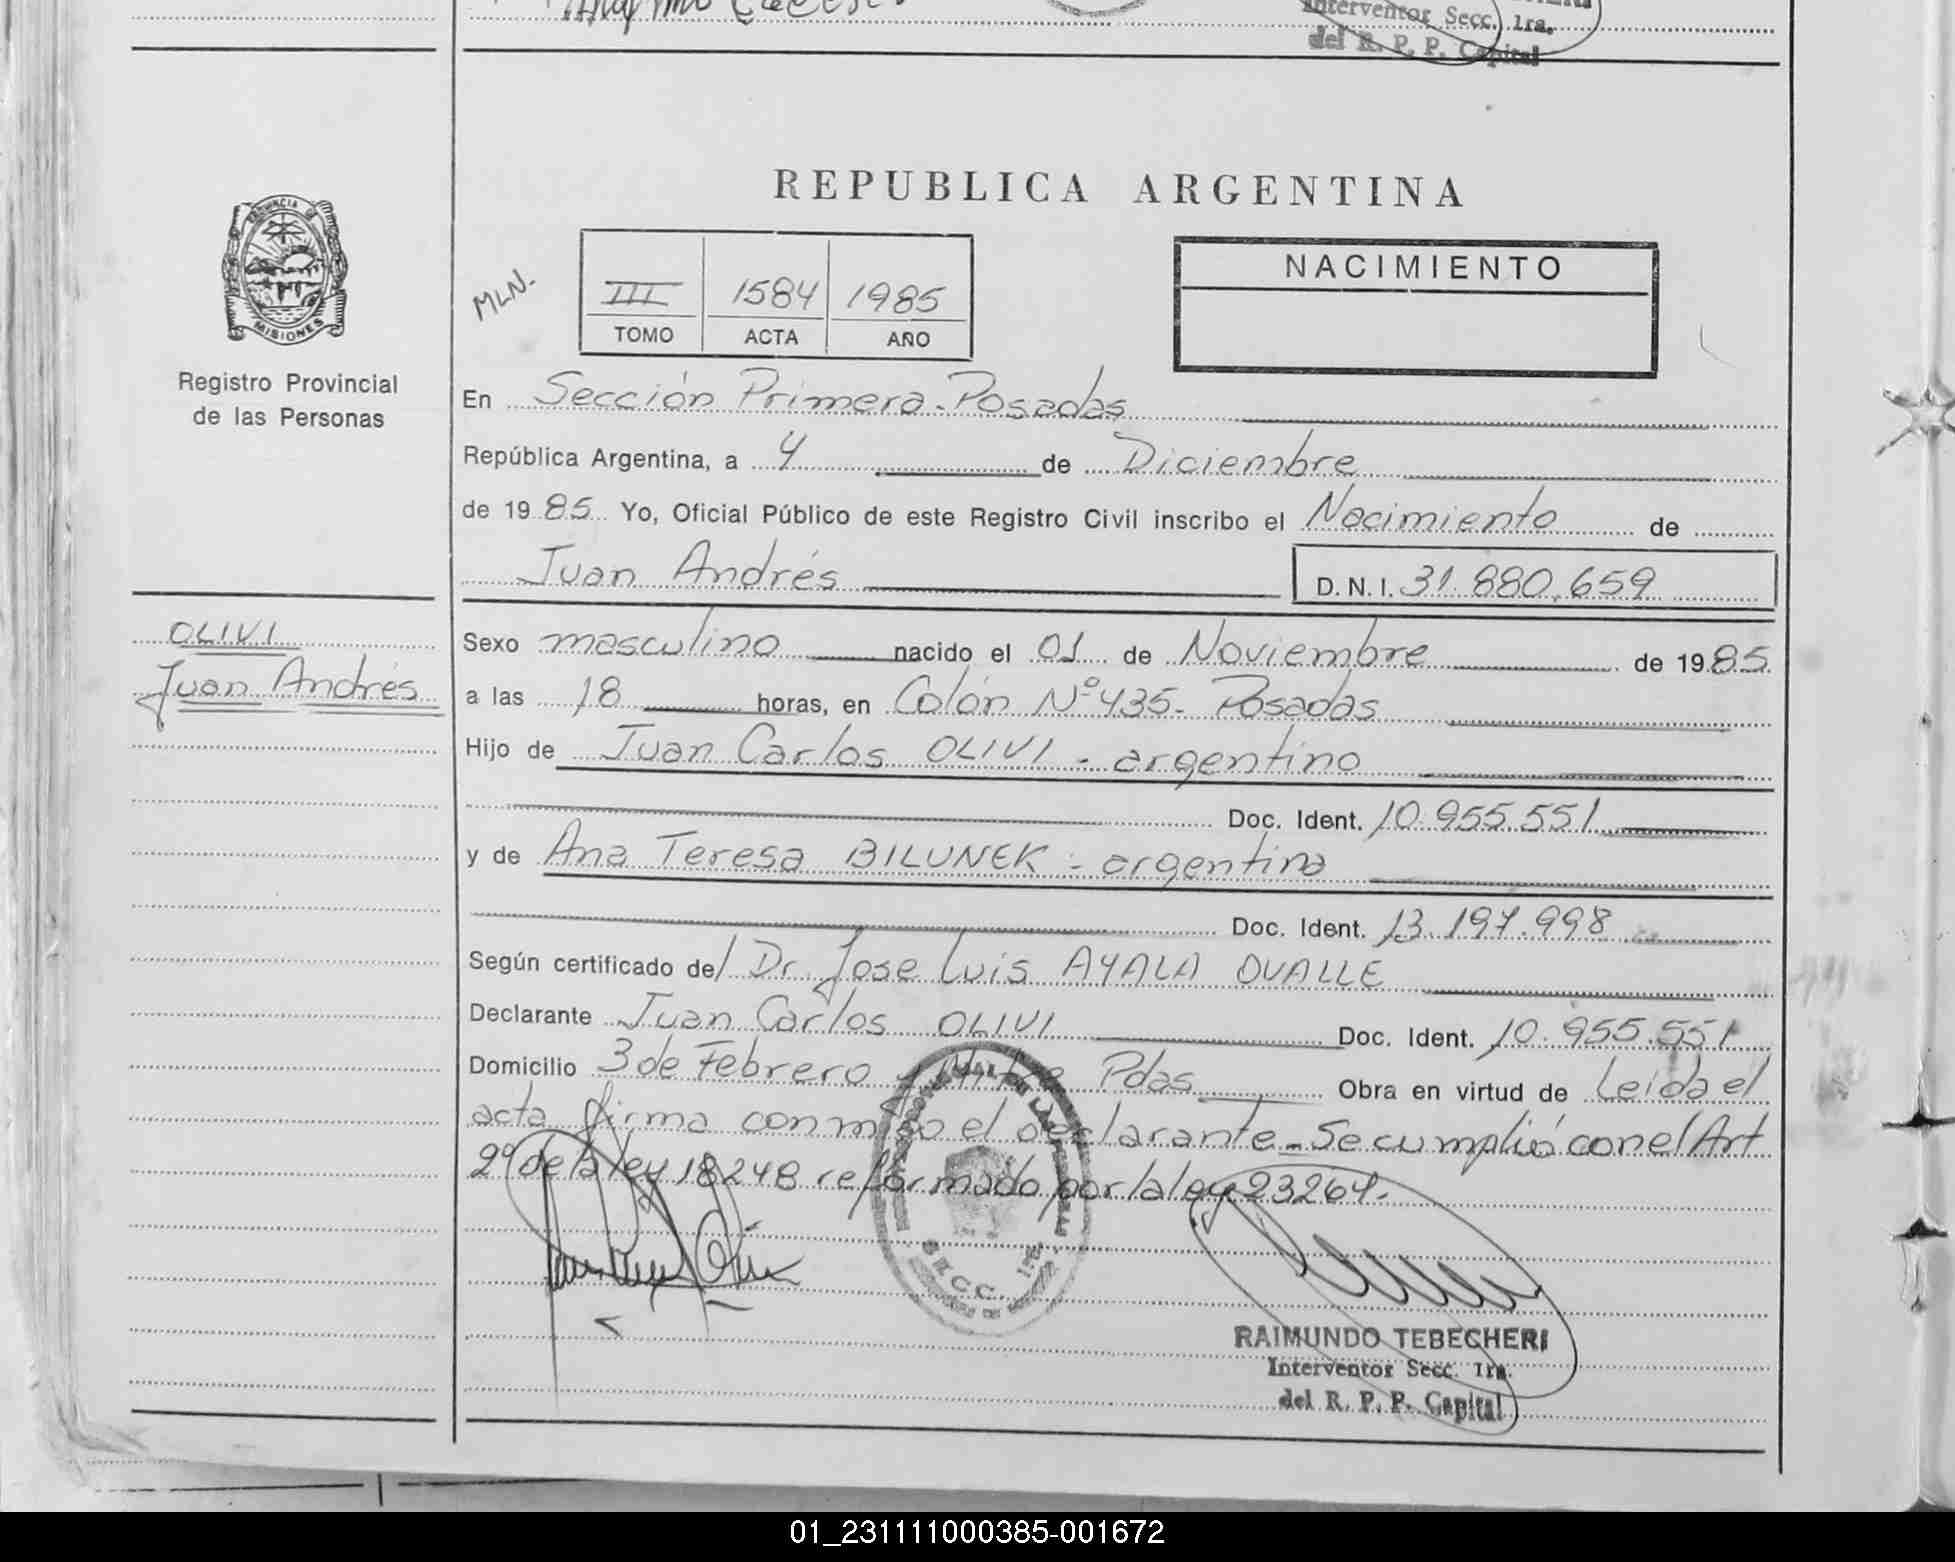 Interventor Secc. 1ra.
del R. P. P. Capital
REPUBLICA ARGENTINA
PROVINCIA DE
MISIONES
Registro Provincial
de las Personas
MLN.
III 1584 1985
TOMO ACTA AÑO
NACIMIENTO
En Sección Primera - Posadas
República Argentina, a 4 de Diciembre
de 1985 Yo, Oficial Público de este Registro Civil inscribo el Nacimiento de
Juan Andrés D.N.I. 31.880.659
OLIVI
Juan Andrés
Sexo masculino nacido el 01 de Noviembre de 1985
a las 18 horas, en Colón Nº 435 - Posadas
Hijo de Juan Carlos OLIVI - argentino
Doc. Ident. 10.955.551
y de Ana Teresa BILUNEK - argentina
Doc. Ident. 13.197.998
Según certificado del Dr. Jose Luis AYALA OVALLE
Declarante Juan Carlos OLIVI Doc. Ident. 10.955.551
Domicilio 3 de Febrero y Mitre Pdas Obra en virtud de Leida el
acta firma conmigo el declarante - Se cumplió con el Art
2º de la ley 18248 reformado por la ley 23264.
SECC. 1RA.
RAIMUNDO TEBECHERI
Interventor Secc. 1ra.
del R. P. P. Capital
01_231111000385-001672